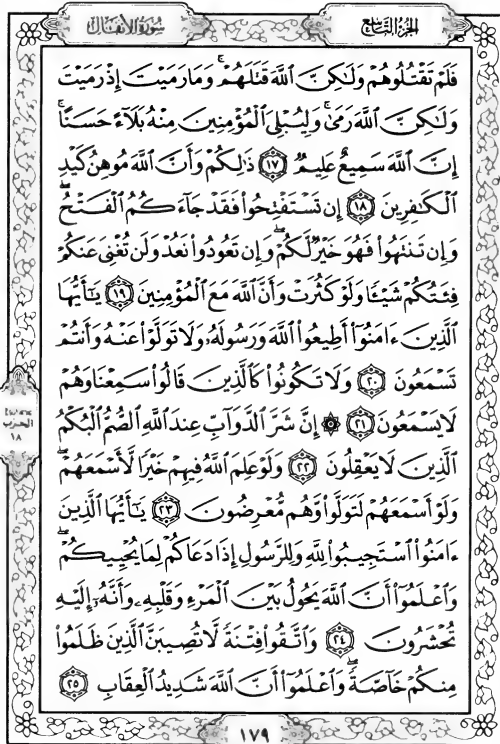 الجزء التاسع
سورة الأنفال
فَلَمْ تَقْتُلُوهُمْ وَلَٰكِنَّ ٱللَّهَ قَتَلَهُمْ ۚ وَمَا رَمَيْتَ إِذْ رَمَيْتَ
وَلَٰكِنَّ ٱللَّهَ رَمَىٰ ۚ وَلِيُبْلِىَ ٱلْمُؤْمِنِينَ مِنْهُ بَلَآءً حَسَنًا ۚ
إِنَّ ٱللَّهَ سَمِيعٌ عَلِيمٌ ١٧ ذَٰلِكُمْ وَأَنَّ ٱللَّهَ مُوهِنُ كَيْدِ
ٱلْكَٰفِرِينَ ١٨ إِن تَسْتَفْتِحُوا۟ فَقَدْ جَآءَكُمُ ٱلْفَتْحُ ۖ
وَإِن تَنتَهُوا۟ فَهُوَ خَيْرٌ لَّكُمْ ۖ وَإِن تَعُودُوا۟ نَعُدْ وَلَن تُغْنِىَ عَنكُمْ
فِئَتُكُمْ شَيْـًٔا وَلَوْ كَثُرَتْ وَأَنَّ ٱللَّهَ مَعَ ٱلْمُؤْمِنِينَ ١٩ يَٰٓأَيُّهَا
ٱلَّذِينَ ءَامَنُوٓا۟ أَطِيعُوا۟ ٱللَّهَ وَرَسُولَهُۥ وَلَا تَوَلَّوْا۟ عَنْهُ وَأَنتُمْ
تَسْمَعُونَ ٢٠ وَلَا تَكُونُوا۟ كَٱلَّذِينَ قَالُوا۟ سَمِعْنَا وَهُمْ
لَا يَسْمَعُونَ ٢١ ۞ إِنَّ شَرَّ ٱلدَّوَآبِّ عِندَ ٱللَّهِ ٱلصُّمُّ ٱلْبُكْمُ
ٱلَّذِينَ لَا يَعْقِلُونَ ٢٢ وَلَوْ عَلِمَ ٱللَّهُ فِيهِمْ خَيْرًا لَّأَسْمَعَهُمْ ۖ
وَلَوْ أَسْمَعَهُمْ لَتَوَلَّوا۟ وَّهُم مُّعْرِضُونَ ٢٣ يَٰٓأَيُّهَا ٱلَّذِينَ
ءَامَنُوا۟ ٱسْتَجِيبُوا۟ لِلَّهِ وَلِلرَّسُولِ إِذَا دَعَاكُمْ لِمَا يُحْيِيكُمْ ۖ
وَٱعْلَمُوٓا۟ أَنَّ ٱللَّهَ يَحُولُ بَيْنَ ٱلْمَرْءِ وَقَلْبِهِۦ وَأَنَّهُۥٓ إِلَيْهِ
تُحْشَرُونَ ٢٤ وَٱتَّقُوا۟ فِتْنَةً لَّا تُصِيبَنَّ ٱلَّذِينَ ظَلَمُوا۟
مِنكُمْ خَآصَّةً ۖ وَٱعْلَمُوٓا۟ أَنَّ ٱللَّهَ شَدِيدُ ٱلْعِقَابِ ٢٥
الحزب
١٨
١٧٩